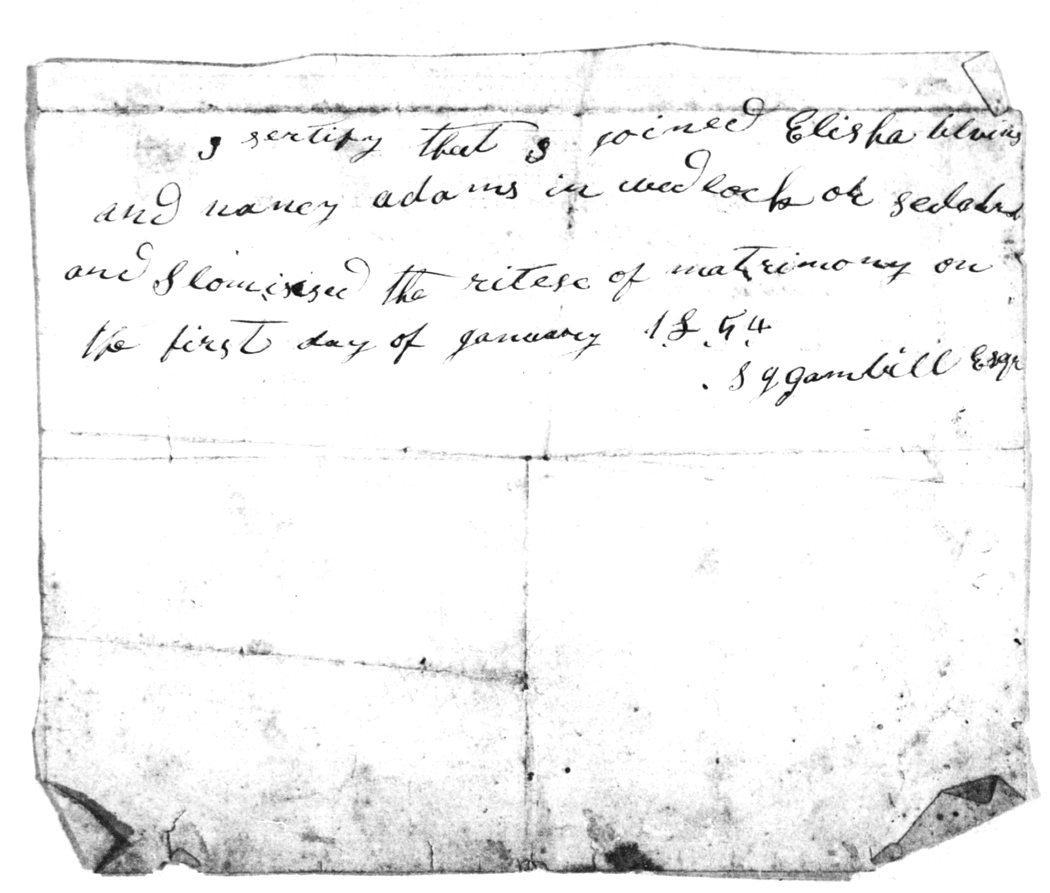 I sertify that I joined Elisha Blvins
and nancy adams in wedlock or
and Slomisised the ritese of matrimony on
the first day of january 1854
S g gambill Esqr